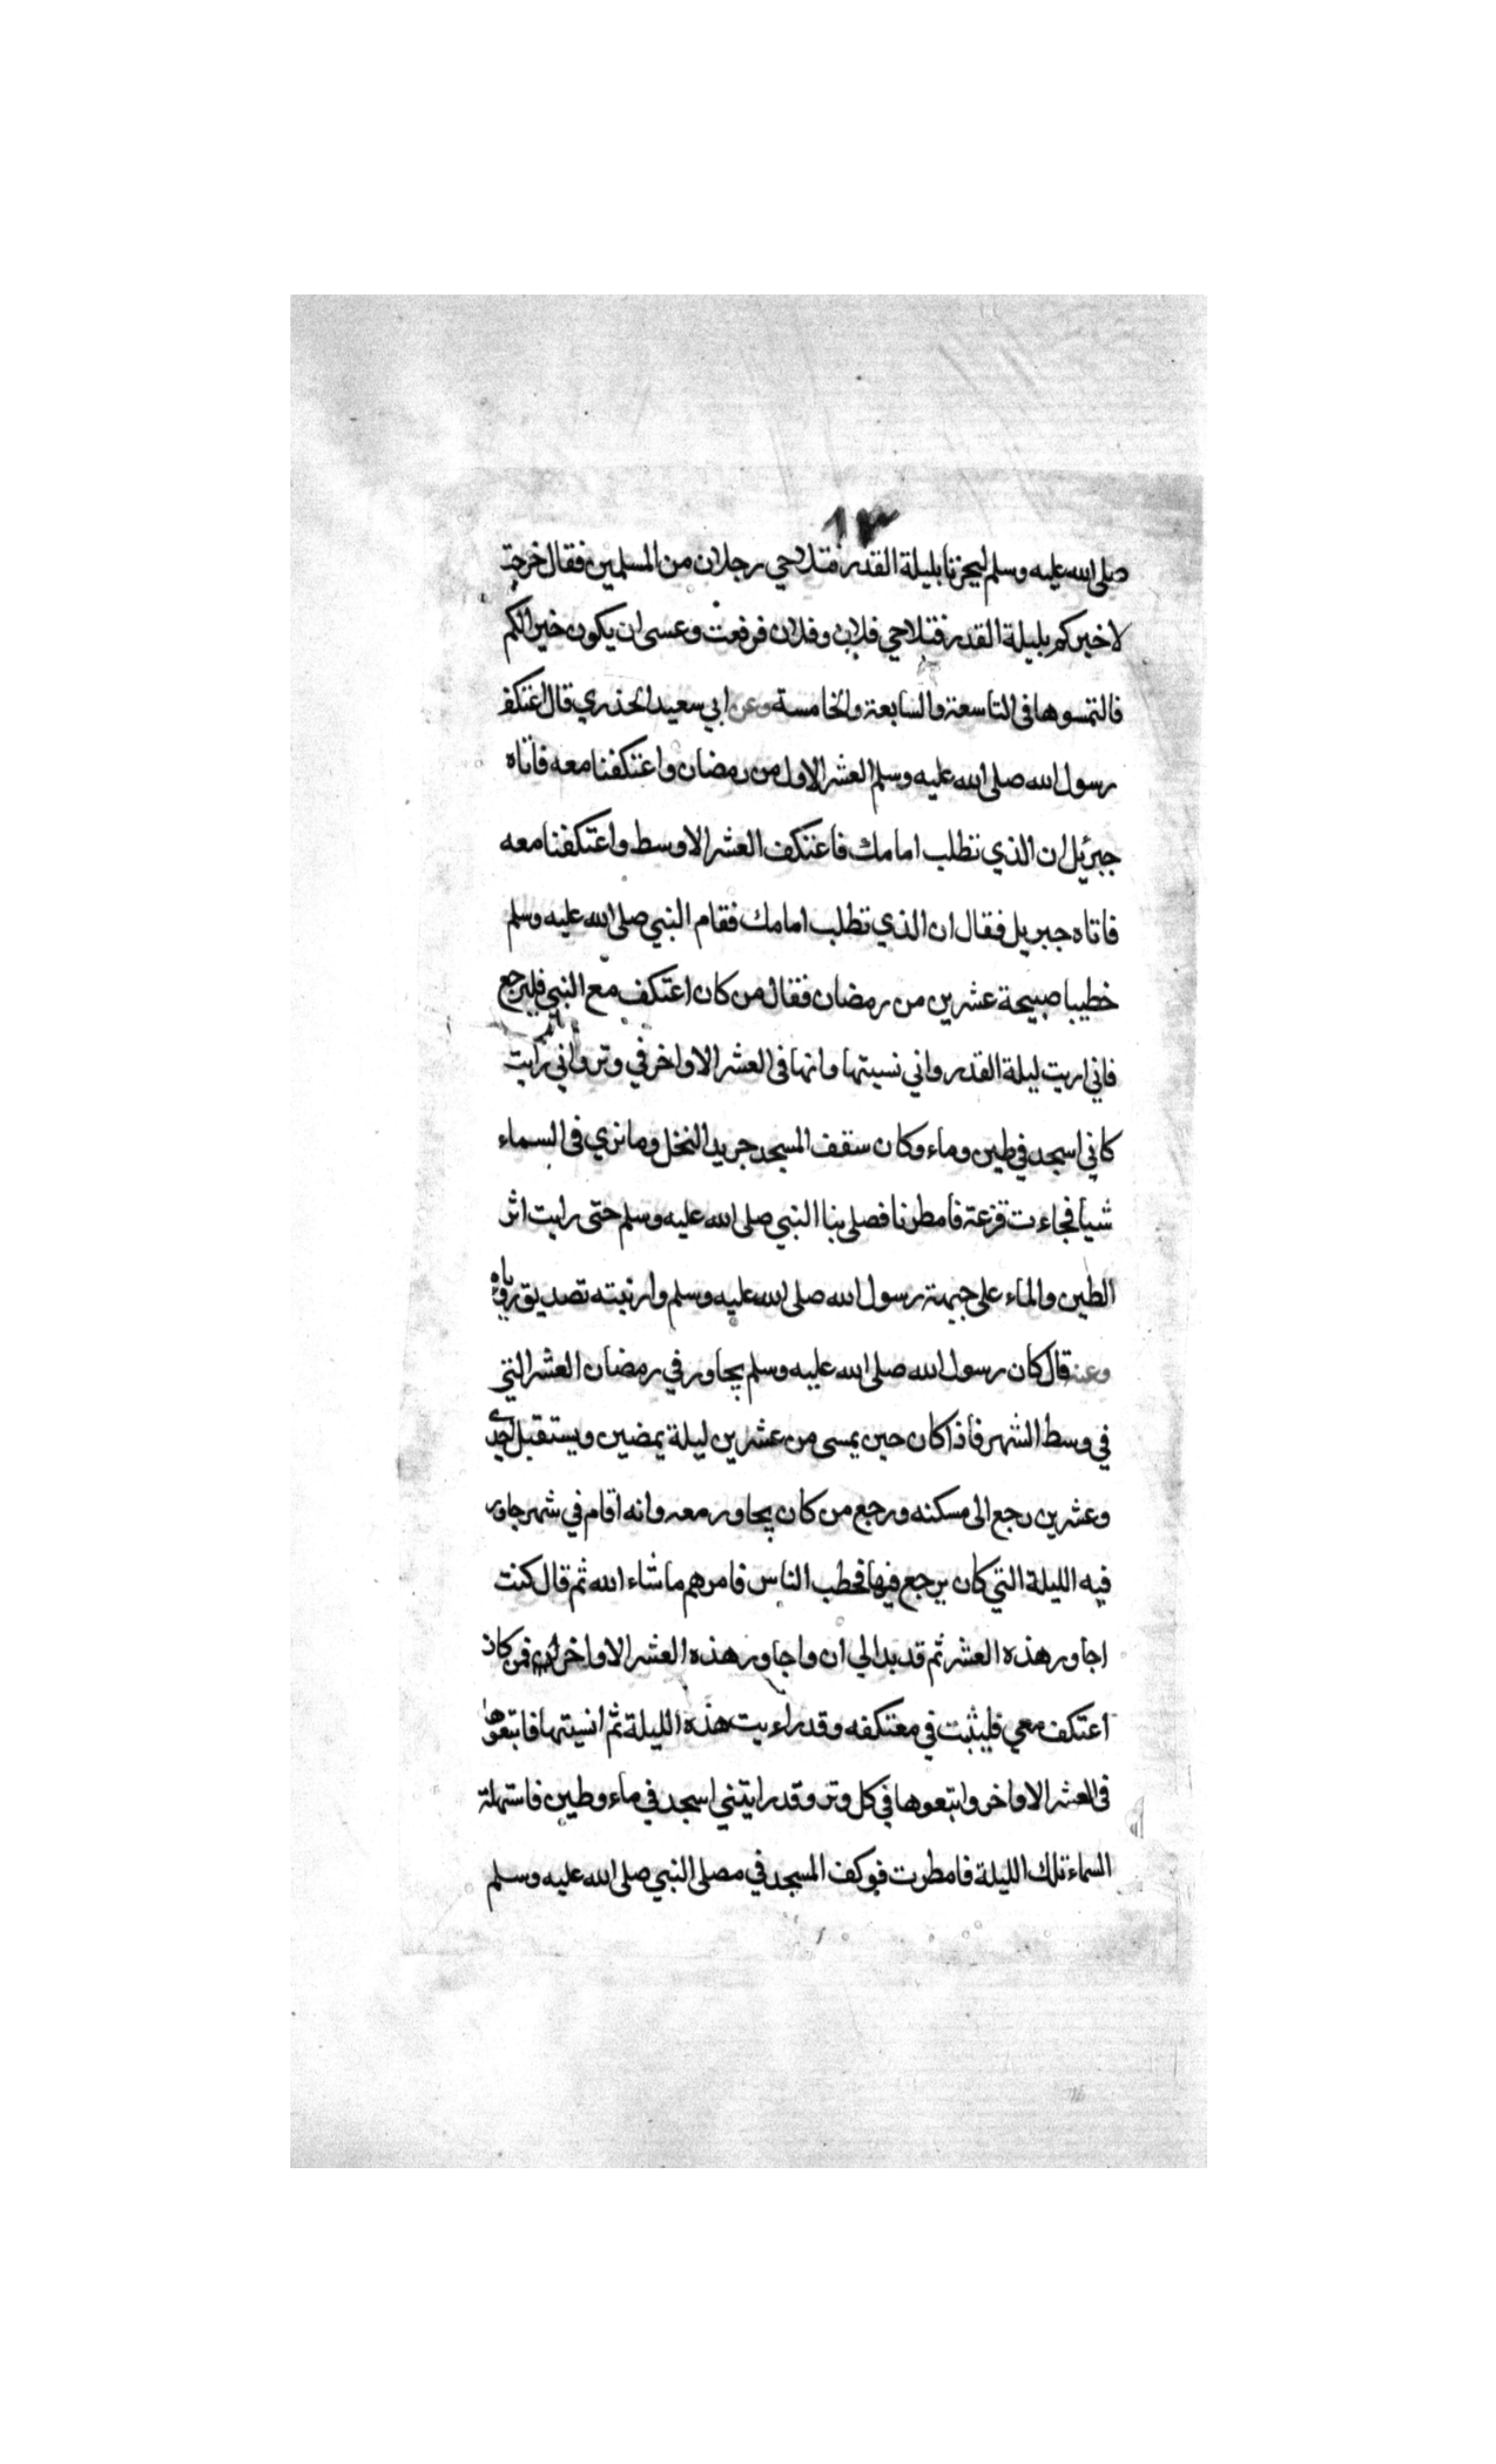 ١٣
صلى الله عليه وسلم ليخبرنا بليلة القدر فتلاحي رجلان من المسلمين فقال خرجت
لاخبركم بليلة القدر فتلاحي فلان وفلان فرفعت وعسى ان يكون خيرا لكم
فالتمسوها في التاسعة والسابعة والخامسة وعن ابي سعيد الخذري قال اعتكف
رسول الله صلى الله عليه وسلم العشر الاول من رمضان واعتكفنا معه فاتاه
جبرئيل ان الذي تطلب امامك فاعتكف العشر الاوسط واعتكفنا معه
فاتاه جبريل فقال ان الذي تطلب امامك فقام النبي صلى الله عليه وسلم
خطيبا صبيحة عشرين من رمضان فقال من كان اعتكف مع النبي فليرجع
فاني اريت ليلة القدر واني نسيتها وانها في العشر الاواخر في وتر واني رايت
كاني اسجد في طين وماء وكان سقف المسجد جريد النخل وما نري في السماء
شيا فجاءت قزعة فامطرنا فصلى بنا النبي صلى الله عليه وسلم حتى رايت اثر
الطين والماء على جبهة رسول الله صلى الله عليه وسلم وارنبته تصديق رؤياه
وعنه قال كان رسول الله صلى الله عليه وسلم يجاور في رمضان العشر التي
في وسط الشهر فاذا كان حين يمسى من عشرين ليلة يمضين ويستقبل احدى
وعشرين رجع الى مسكنه ورجع من كان يجاور معه وانه اقام في شهر جاور
فيه الليلة التي كان يرجع فيها فخطب الناس فامرهم ما شاء الله ثم قال كنت
اجاور هذه العشر ثم قد بدا لي ان واجاور هذه العشر الاواخر فمن كان
اعتكف معي فليثبت في معتكفه وقد راءيت هذه الليلة ثم انسيتها فابتغوها
في العشر الاواخر وابتغوها في كل وتر وقد رايتني اسجد في ماء وطين فاستهلة
السماء تلك الليلة فامطرت فوكف المسجد في مصلى النبي صلى الله عليه وسلم